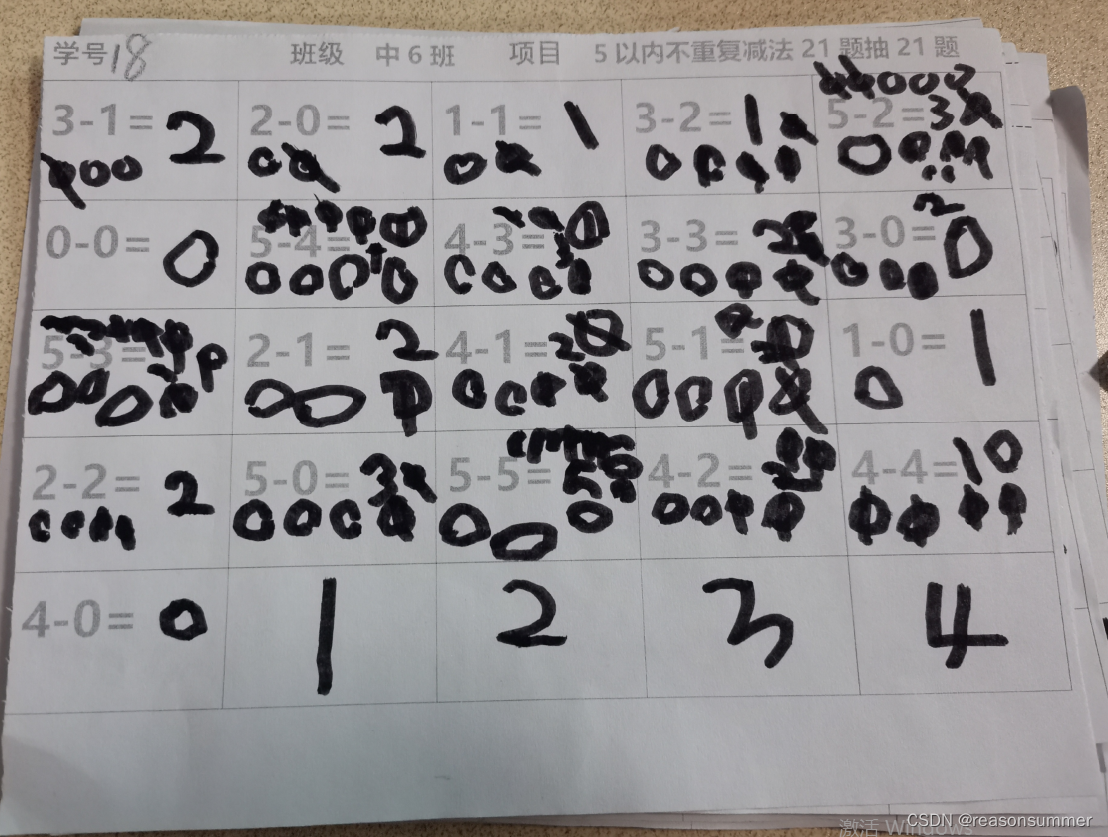 学号18 班级 中6班 项目 5以内不重复减法21题抽21题
3-1= 2 2-0= 2 1-1= 1 3-2= 1 5-2= 3
0-0= 0 5-4= 4-3= 3-3= 3-0= 0
5-3= 2-1= 2 4-1= 2 5-1= 1-0= 1
2-2= 2 5-0= 3 5-5= 5 4-2= 4-4= 10
4-0= 0 1 2 3 4
激活 Windows
CSDN @reasonsummer